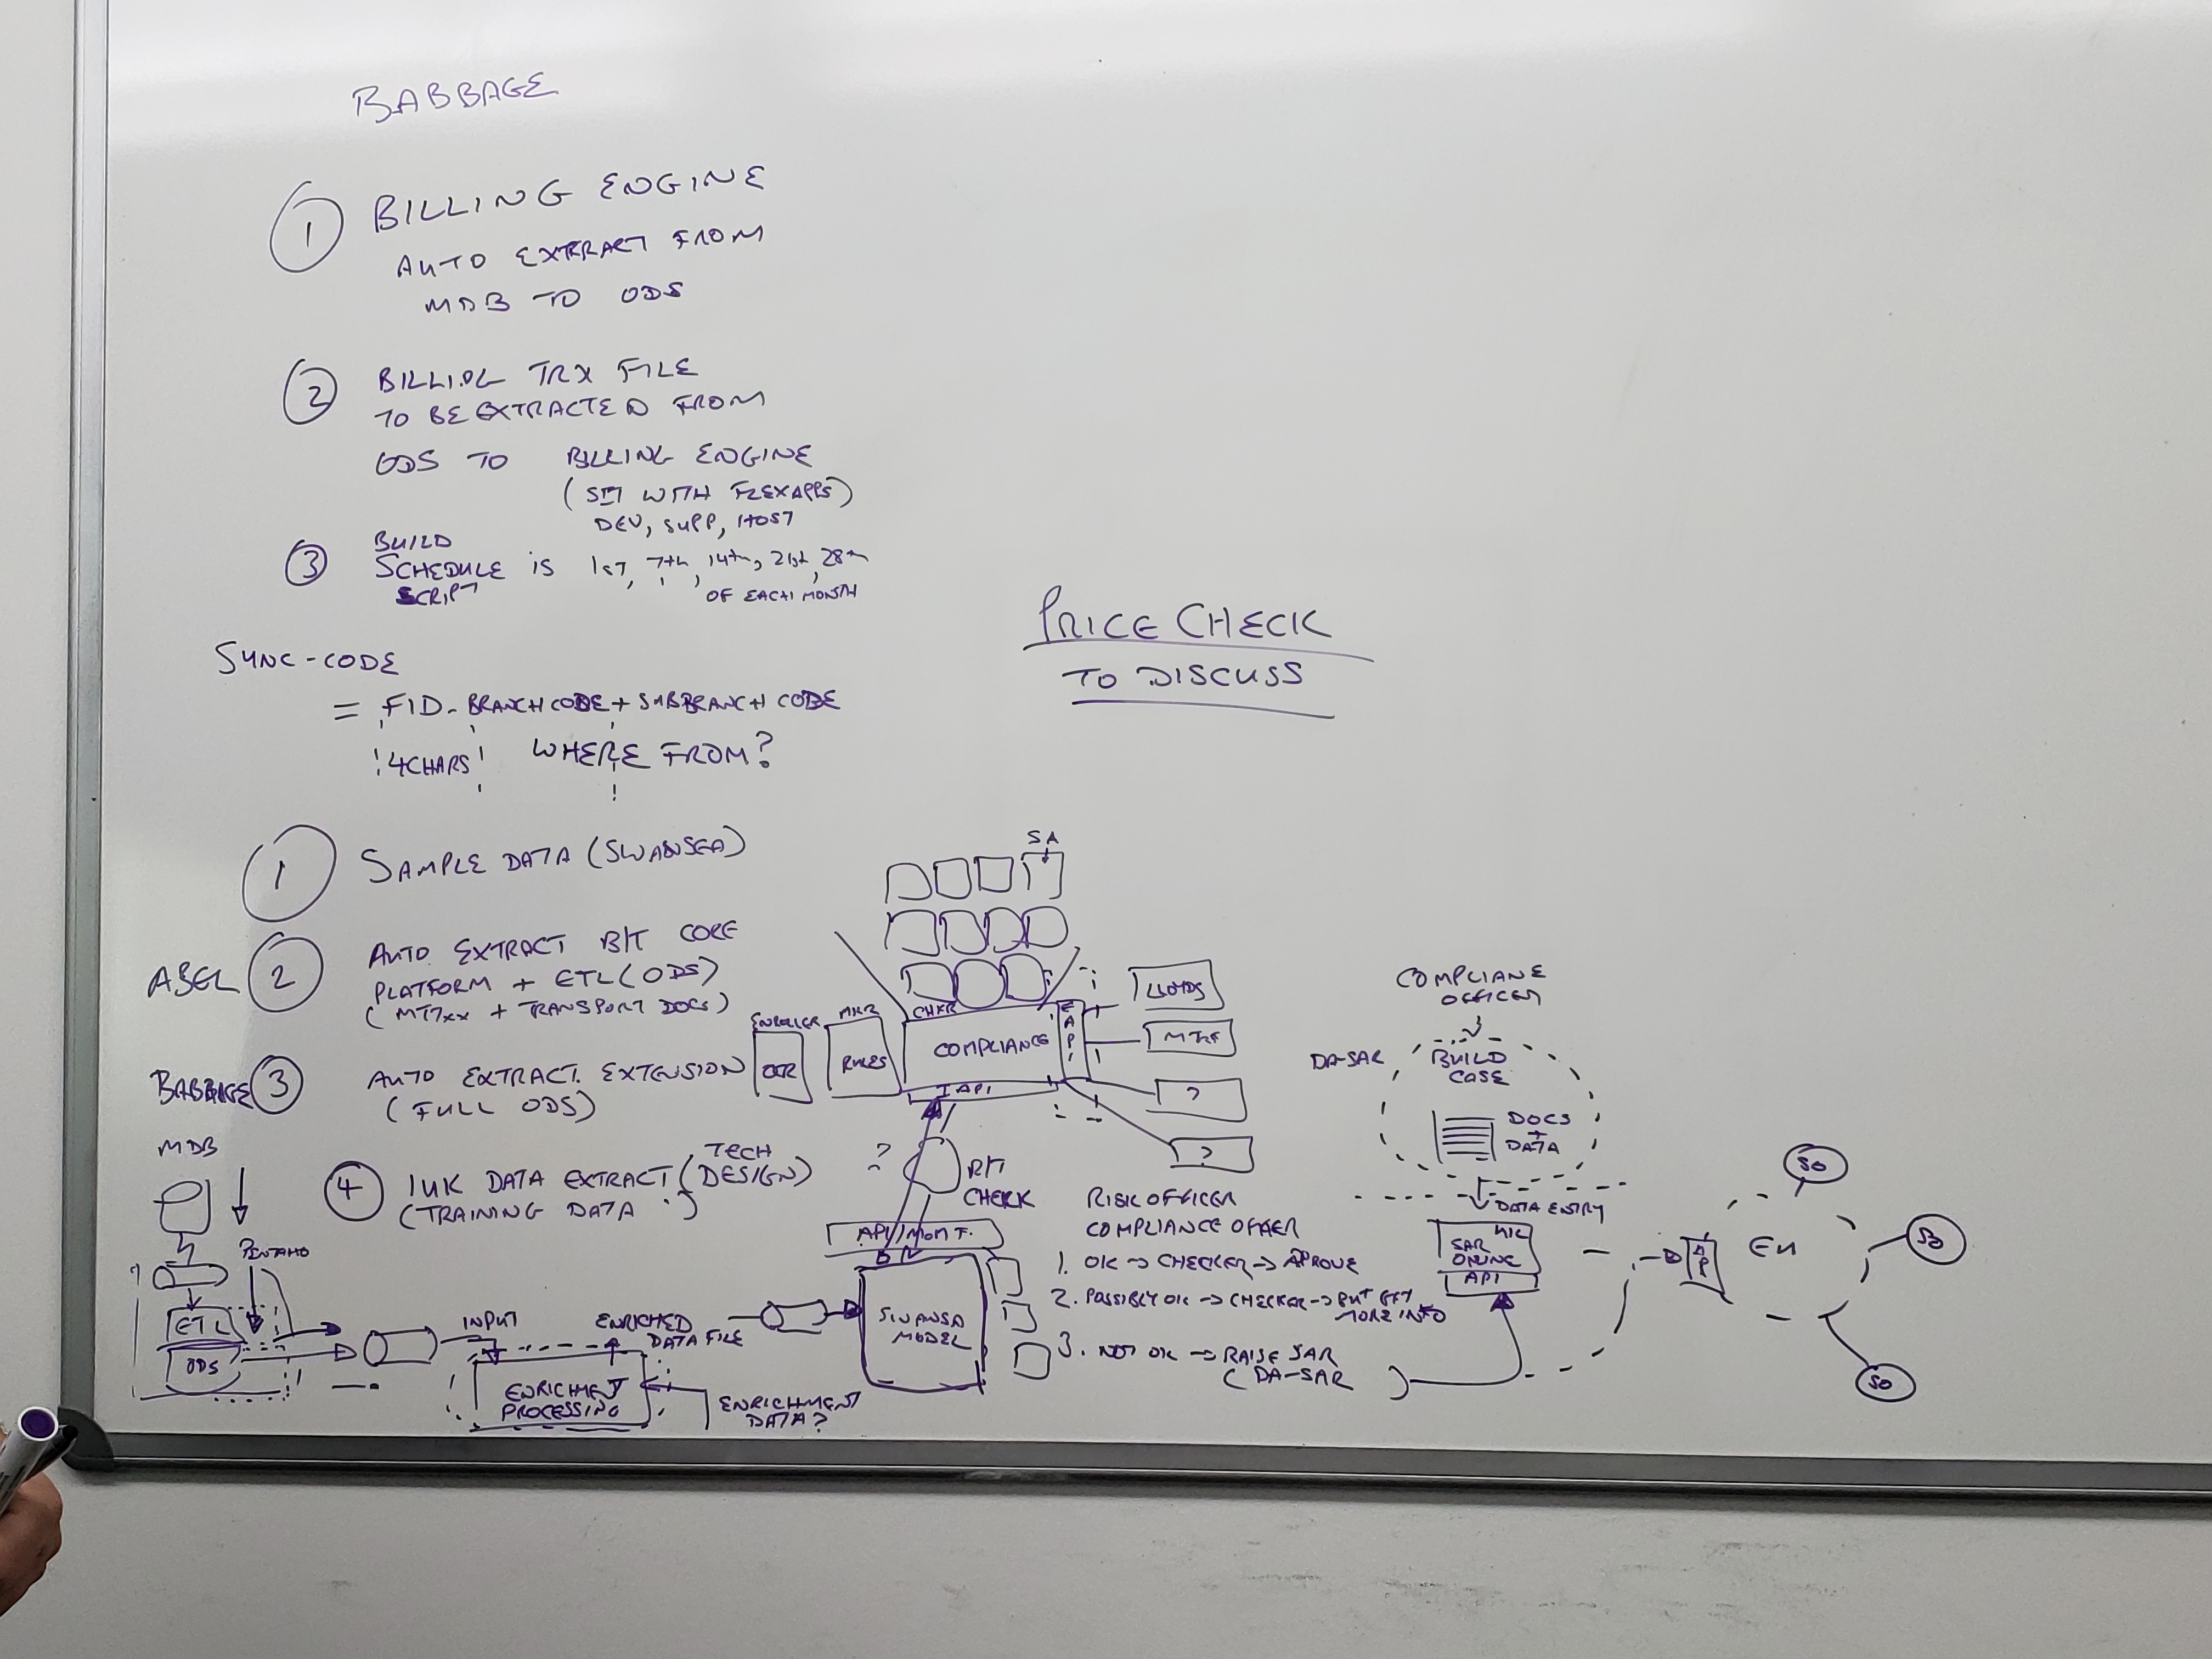 BABBAGE
1 BILLING ENGINE
AUTO EXTRACT FROM
MDB TO ODS
2 BILLING TRX FILE
TO BE EXTRACTED FROM
ODS TO BILLING ENGINE
(SIT WITH FLEXAPPS)
DEV, SUPP, HOST
3 BUILD
SCHEDULE IS 1ST, 7th, 14th, 21st, 28th
SCRIPT OF EACH MONTH
SYNC-CODE
= FID - BRANCH CODE + SUBBRANCH CODE
4 CHARS WHERE FROM?
PRICE CHECK
TO DISCUSS
1 SAMPLE DATA (SWANSEA)
ABEL 2 AUTO EXTRACT B/T CORE
PLATFORM + ETL (ODS)
(MT7xx + TRANSPORT DOCS)
BABBAGE 3 AUTO EXTRACT EXTENSION
(FULL ODS)
4 1UK DATA EXTRACT (TECH DESIGN)
(TRAINING DATA)
MDB
PENTAHO
ETL
ODS
INPUT
ENRICHED
DATA FILE
ENRICHMENT
PROCESSING
ENRICHMENT
DATA?
SWANSA
MODEL
API/MOMT.
?
R/T
CHECK
SA
MKR
RULES
OCR
CHKR
COMPLIANCE
I API
E API
LLOYDS
?
?
RISK OFFICER
COMPLIANCE OFFICER
1. OK → CHECKER → APROVE
2. POSSIBLY OK → CHECKER → BUT GET
MORE INFO
3. NOT OK → RAISE SAR
(DA-SAR)
COMPLIANE
OFFICER
DA-SAR
BUILD
CASE
DOCS
+
DATA
DATA ENTRY
SAR
ONLINE
API
API
EU
SO
SO
SO